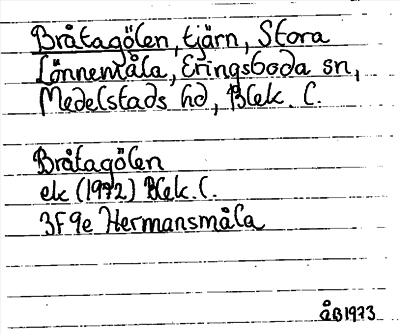 Bråtagölen, tjärn, Stora
Lönnemåla, Eringsboda sn,
Medelstads hd, Blek. l.
Bråtagölen
ek (1972) Blek. l.
3F 9e Hermansmåla
ÅB 1973